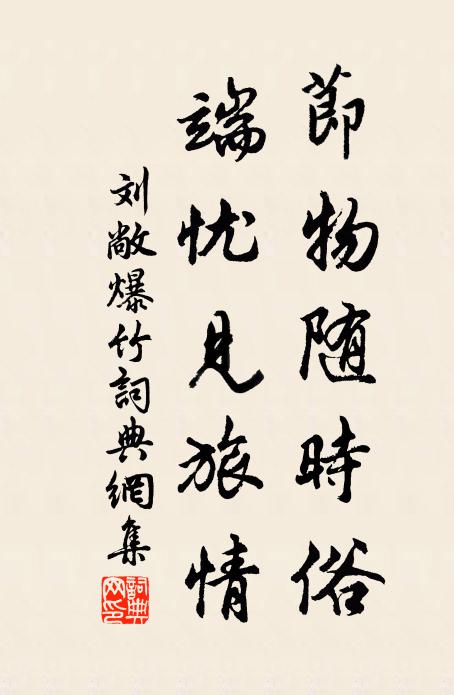 節物随時俗
端忧見旅情
刘敞爆竹詞典網集
詞典网印